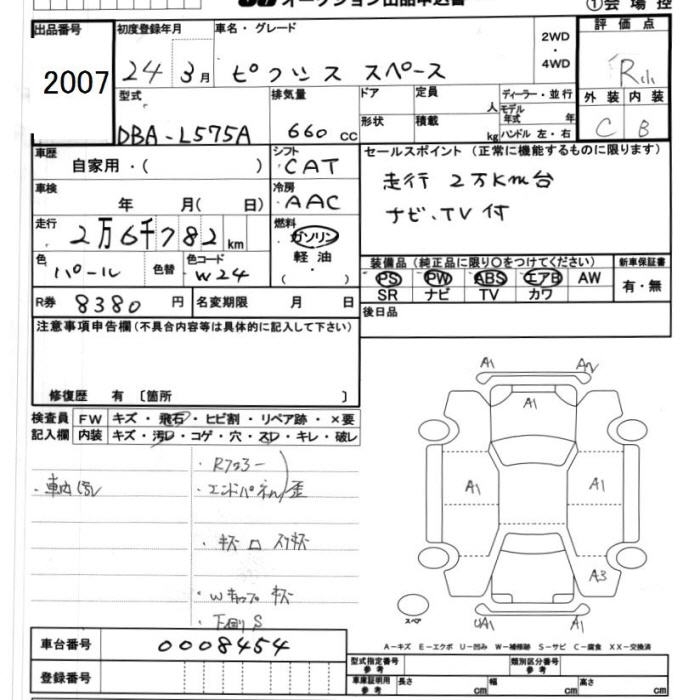 オークション出品申込書
①会場控
出品番号
2007
初度登録年月
24 3月
車名・グレード
ピクシス スペース
2WD
・
4WD
評価点
R
外装 内装
C B
型式
DBA-L575A
排気量
660 cc
ドア
形状
定員 人
積載 kg
ディーラー・並行
モデル年式 年
ハンドル 左・右
車歴 自家用・( )
シフト
CAT
車検 年 月( 日)
冷房
AAC
走行
2万6千782km
燃料
ガソリン
軽油
・
( )
色
パール
色替
色コード
W24
R券 8380円
名変期限 月 日
セールスポイント(正常に機能するものに限ります)
走行 2万Km台
ナビ、TV付
装備品(純正品に限り〇をつけてください)
新車保証書
PS PW ABS エアB AW
SR ナビ TV カワ
有・無
後日品
注意事項申告欄(不具合内容等は具体的に記入して下さい)
修復歴 有〔箇所 〕
検査員 FW キズ・飛石・ヒビ割・リペア跡・×要
記入欄 内装 キズ・汚D・コゲ・穴・スD・キレ・破レ
・エンドパネル歪
・Wキャップ キズ
・下廻りS
A1 AV
A1
A1 A1
A3
スペア
UA1 A1
A-キズ E-エクボ U-凹み W-補修跡 S-サビ C-腐食 XX-交換済
車台番号 0008454
登録番号
型式指定番号 参考
類別区分番号 参考
車庫証明用 参考
長さ cm
幅 cm
高さ cm